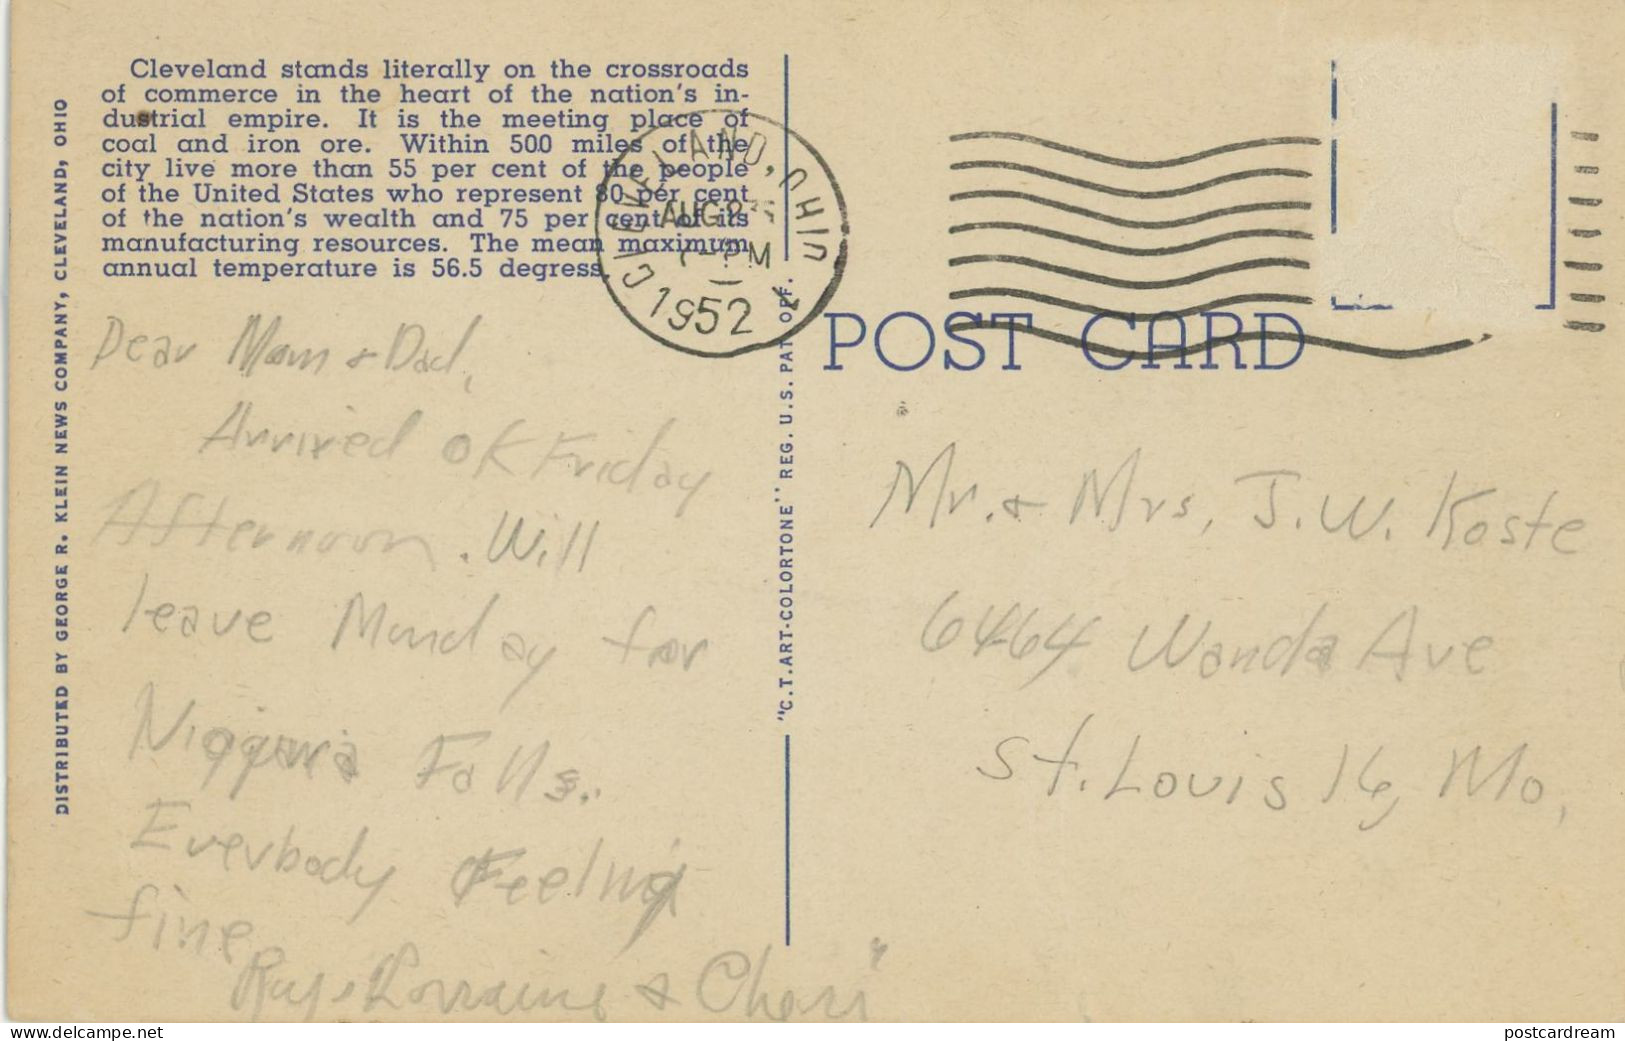 Cleveland stands literally on the crossroads
of commerce in the heart of the nation's in-
dustrial empire. It is the meeting place of
coal and iron ore. Within 500 miles of the
city live more than 55 per cent of the people
of the United States who represent 80 per cent
of the nation's wealth and 75 per cent of its
manufacturing resources. The mean maximum
annual temperature is 56.5 degress.
DISTRIBUTED BY GEORGE R. KLEIN NEWS COMPANY, CLEVELAND, OHIO
CLEVELAND, OHIO
AUG
PM
1952
"C.T. ART-COLORTONE" REG. U.S. PAT. OFF.
POST CARD
Dear Mom & Dad,
Arrived OK Friday
Afternoon. Will
leave Monday for
Niagara Falls.
Everbody Feeling
fine
Ray, Lorraine & Cheri
Mr. & Mrs, J.W. Koste
6464 Wanda Ave
St. Louis 16, Mo,
www.delcampe.net
postcardream